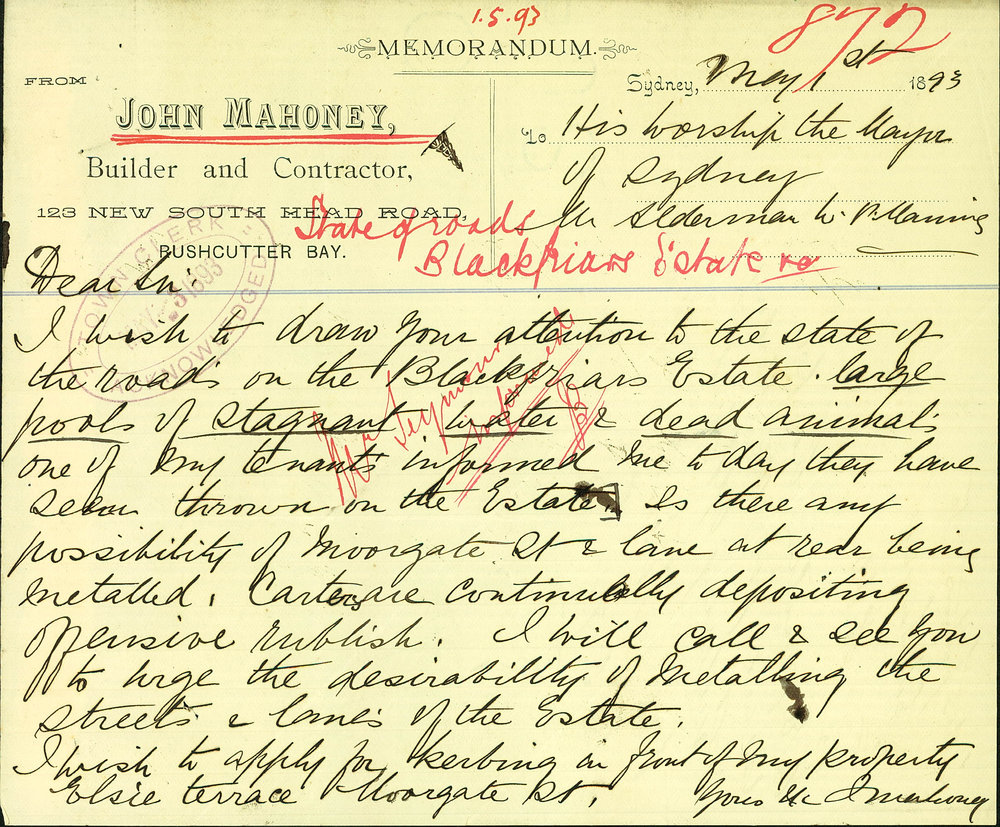 1.5.93
872
MEMORANDUM.
FROM
Sydney, May 1st 1893
JOHN MAHONEY,
Builder and Contractor,
123 NEW SOUTH HEAD ROAD,
RUSHCUTTER BAY.
To His Worship the Mayor
of Sydney
Mr Alderman W. P. Manning
State of roads
Blackfriars Estate
TOWN CLERK
ACKNOWLEDGED
Dear Sir
I wish to draw your attention to the state of
the roads on the Blackfriars Estate. large
pools of stagnant water & dead animals
one of my tenants informed me to day they have
seen thrown on the Estate. Is there any
possibility of Moorgate St & lane at rear being
Metalled. Carters are continually depositing
offensive rubbish. I will call & see you
to urge the desirability of Metalling the
streets & lanes of the Estate.
I wish to apply for kerbing in front of my property
Elsie terrace Moorgate St.
Yours &c J Mahoney
Mr Seymour
informed